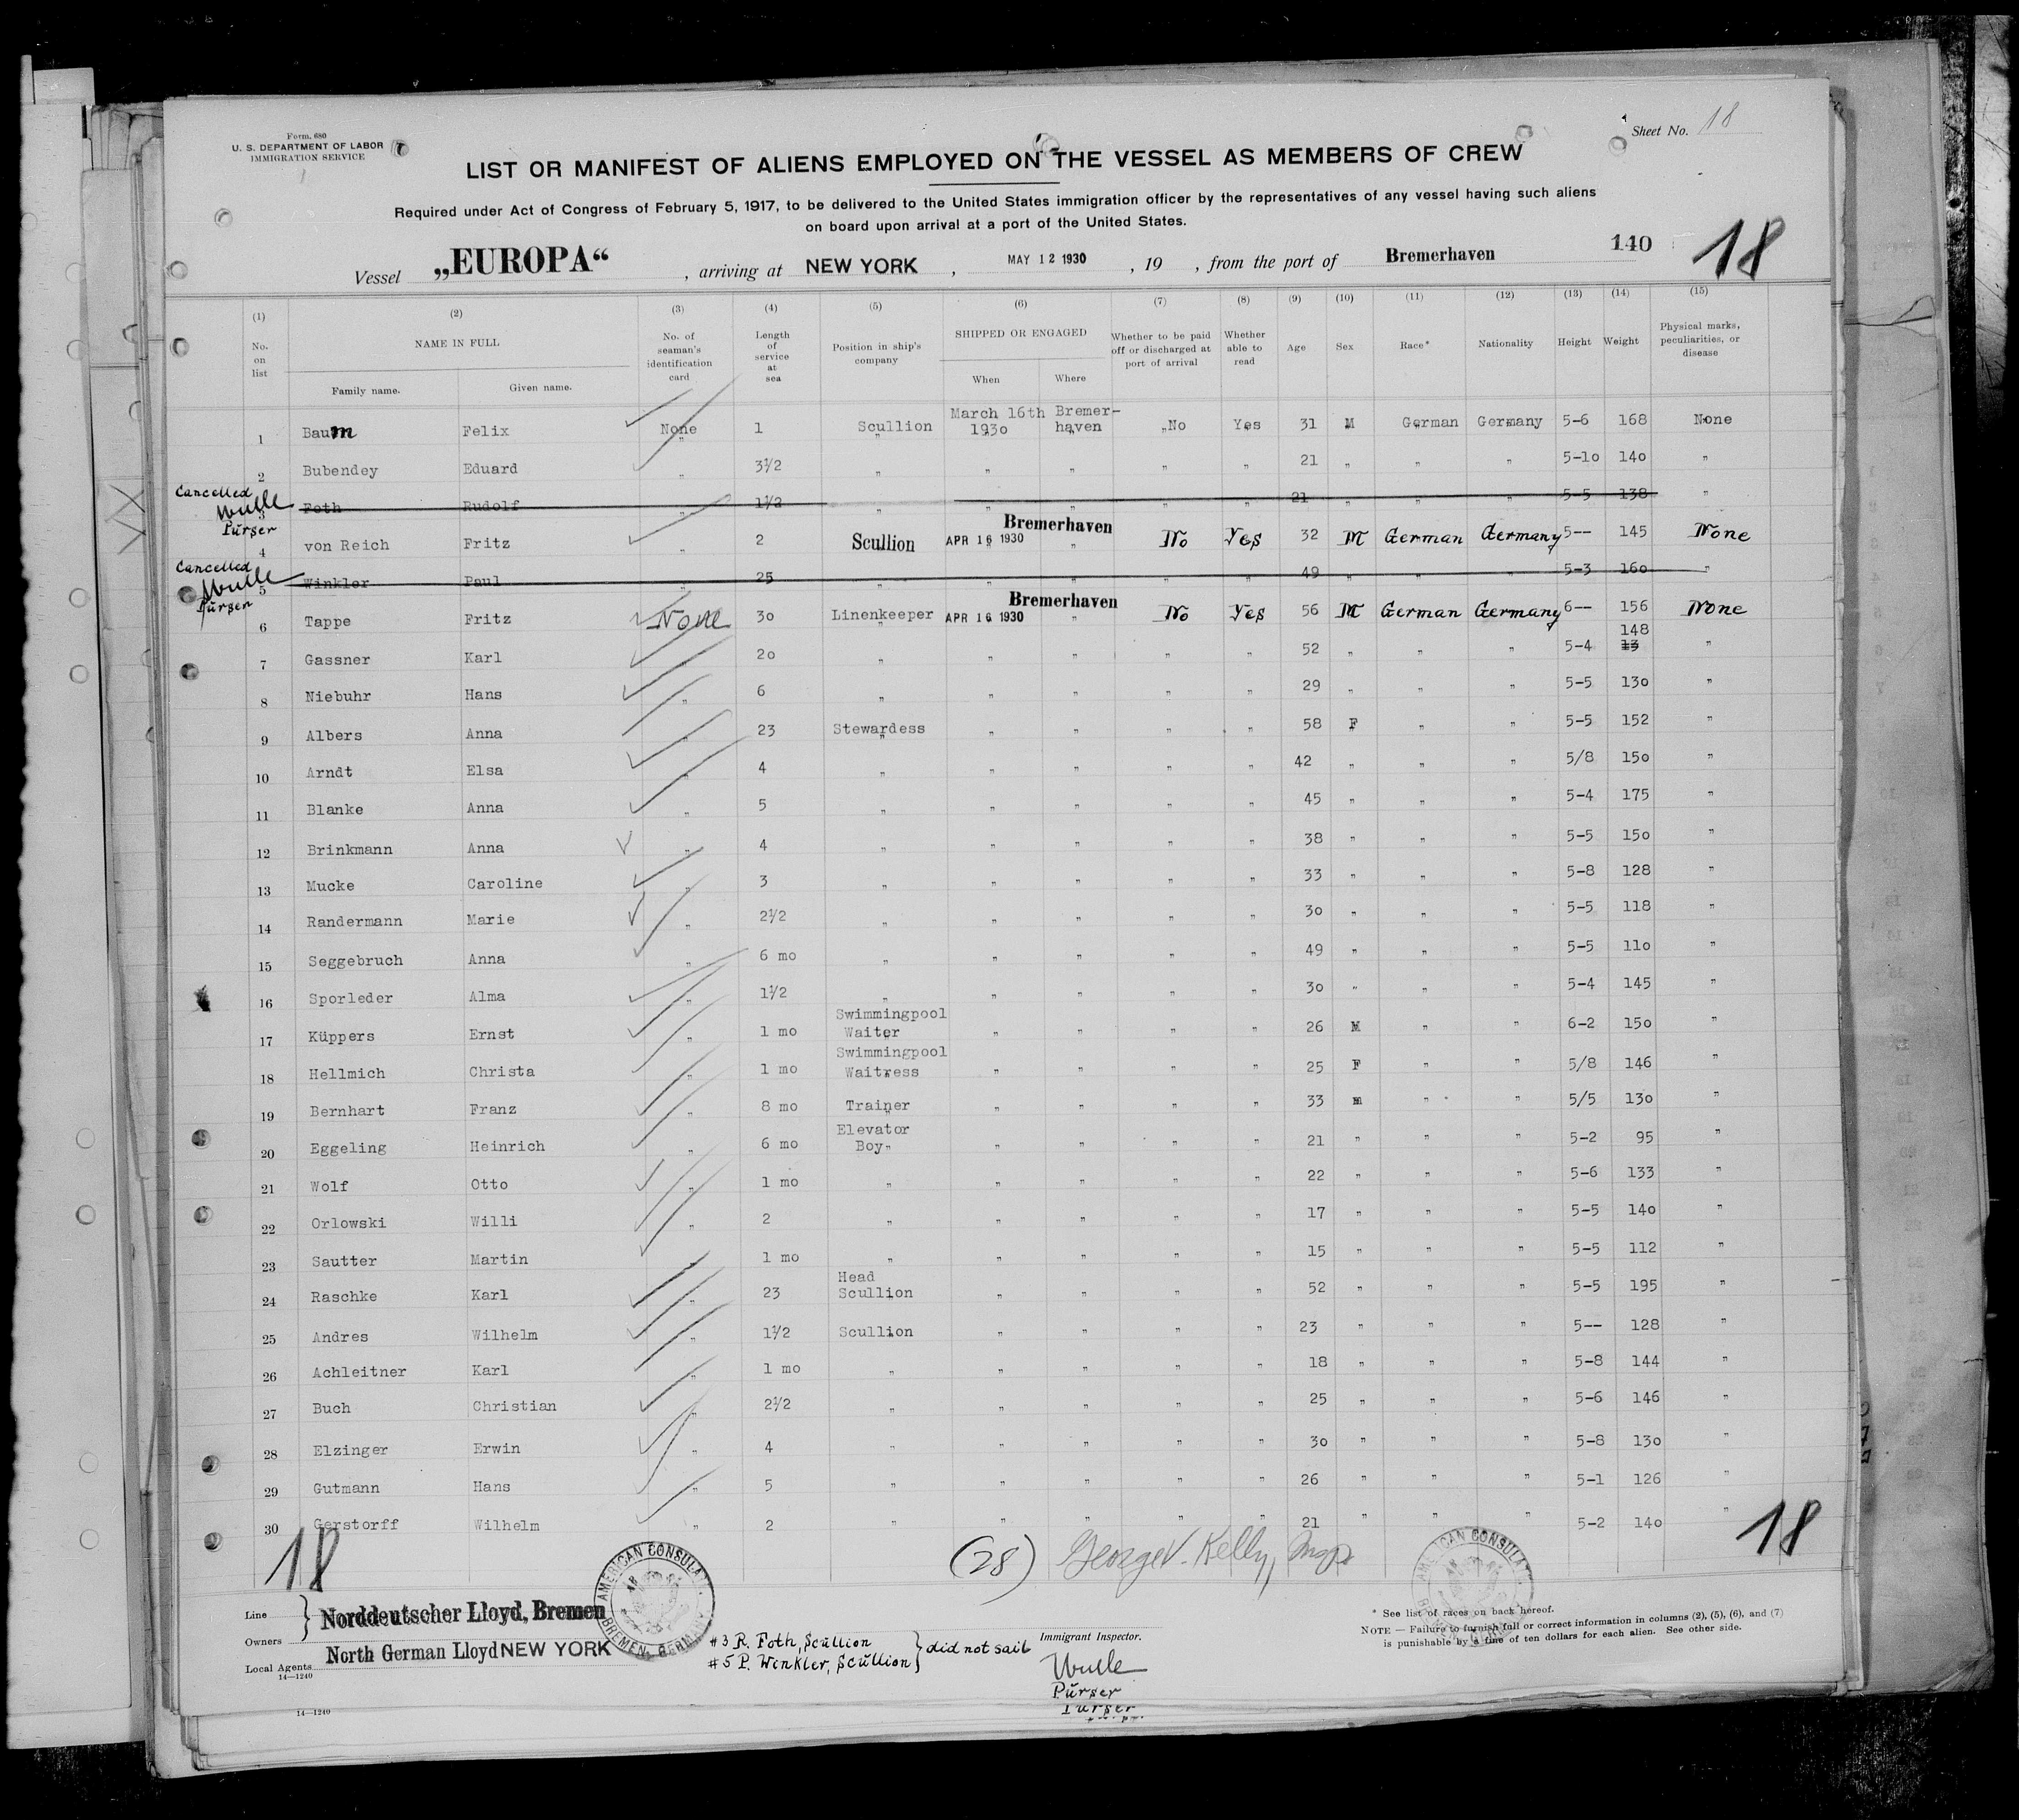 Form. 680
U. S. DEPARTMENT OF LABOR
IMMIGRATION SERVICE
Sheet No. 18
LIST OR MANIFEST OF ALIENS EMPLOYED ON THE VESSEL AS MEMBERS OF CREW
Required under Act of Congress of February 5, 1917, to be delivered to the United States immigration officer by the representatives of any vessel having such aliens
on board upon arrival at a port of the United States.
140 18
Vessel „EUROPA“ , arriving at NEW YORK , MAY 12 1930 , 19 , from the port of Bremerhaven
(1) (2) (3) (4) (5) (6) (7) (8) (9) (10) (11) (12) (13) (14) (15)
No. on list NAME IN FULL Family name. Given name. No. of seaman's identification card Length of service at sea Position in ship's company SHIPPED OR ENGAGED When Where Whether to be paid off or discharged at port of arrival Whether able to read Age Sex Race* Nationality Height Weight Physical marks, peculiarities, or disease
1 Baum Felix None 1 Scullion March 16th 1930 Bremer-haven No Yes 31 M German Germany 5-6 168 None
2 Bubendey Eduard „ 3½ „ „ „ „ „ 21 „ „ „ 5-10 140 „
Cancelled Wulle Purser
3 Foth Rudolf „ 1½ „ „ „ „ „ 21 „ „ „ 5-5 138 „
4 von Reich Fritz „ 2 Scullion APR 16 1930 Bremerhaven „ No Yes 32 M German Germany 5-- 145 None
Cancelled Wulle Purser
5 Winkler Paul „ 25 „ „ „ „ „ 49 „ „ „ 5-3 160 „
6 Tappe Fritz None 30 Linenkeeper APR 16 1930 Bremerhaven „ No Yes 56 M German Germany 6-- 156 None
7 Gassner Karl „ 20 „ „ „ „ „ 52 „ „ „ 5-4 13 148 „
8 Niebuhr Hans „ 6 „ „ „ „ „ 29 „ „ „ 5-5 130 „
9 Albers Anna „ 23 Stewardess „ „ „ „ 58 F „ „ 5-5 152 „
10 Arndt Elsa „ 4 „ „ „ „ „ 42 „ „ „ 5/8 150 „
11 Blanke Anna „ 5 „ „ „ „ „ 45 „ „ „ 5-4 175 „
12 Brinkmann Anna „ 4 „ „ „ „ „ 38 „ „ „ 5-5 150 „
13 Mucke Caroline „ 3 „ „ „ „ „ 33 „ „ „ 5-8 128 „
14 Randermann Marie „ 2½ „ „ „ „ „ 30 „ „ „ 5-5 118 „
15 Seggebruch Anna „ 6 mo „ „ „ „ „ 49 „ „ „ 5-5 110 „
16 Sporleder Alma „ 1½ „ „ „ „ „ 30 „ „ „ 5-4 145 „
17 Küppers Ernst „ 1 mo Swimmingpool Waiter „ „ „ „ 26 M „ „ 6-2 150 „
18 Hellmich Christa „ 1 mo Swimmingpool Waitress „ „ „ „ 25 F „ „ 5/8 146 „
19 Bernhart Franz „ 8 mo Trainer „ „ „ „ 33 m „ „ 5/5 130 „
20 Eggeling Heinrich „ 6 mo Elevator Boy „ „ „ „ 21 „ „ „ 5-2 95 „
21 Wolf Otto „ 1 mo „ „ „ „ „ 22 „ „ „ 5-6 133 „
22 Orlowski Willi „ 2 „ „ „ „ „ 17 „ „ „ 5-5 140 „
23 Sautter Martin „ 1 mo „ „ „ „ „ 15 „ „ „ 5-5 112 „
24 Raschke Karl „ 23 Head Scullion „ „ „ „ 52 „ „ „ 5-5 195 „
25 Andres Wilhelm „ 1½ Scullion „ „ „ „ 23 „ „ „ 5-- 128 „
26 Achleitner Karl „ 1 mo „ „ „ „ „ 18 „ „ „ 5-8 144 „
27 Buch Christian „ 2½ „ „ „ „ „ 25 „ „ „ 5-6 146 „
28 Elzinger Erwin „ 4 „ „ „ „ „ 30 „ „ „ 5-8 130 „
29 Gutmann Hans „ 5 „ „ „ „ „ 26 „ „ „ 5-1 126 „
30 Gerstorff Wilhelm „ 2 „ „ „ „ „ 21 „ „ „ 5-2 140 „
18 (28) George V. Kelly, Insp 18
AMERICAN CONSULATE BREMEN, GERMANY
AMERICAN CONSULATE BREMEN, GERMANY
Line
Owners } Norddeutscher Lloyd, Bremen
Local Agents North German Lloyd NEW YORK
14—1240
#3 R. Foth, Scullion
#5 P. Winkler, Scullion } did not sail
Immigrant Inspector.
Wulle
Purser
Purser
* See list of races on back hereof.
NOTE — Failure to furnish full or correct information in columns (2), (5), (6), and (7)
is punishable by a fine of ten dollars for each alien. See other side.
14—1240